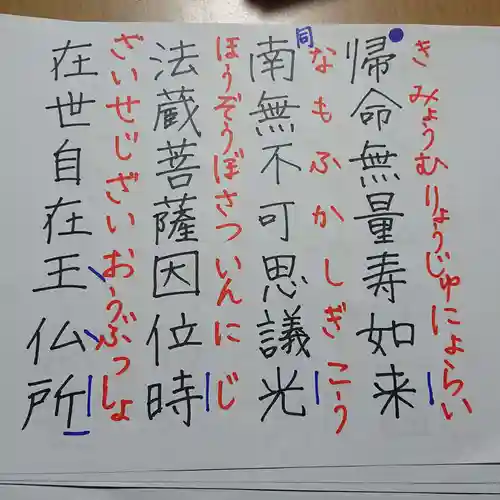 帰命無量寿如来
きみょうむりょうじゅにょらい
同
南無不可思議光
なもふかしぎこう
法蔵菩薩因位時
ほうぞうぼさついんにじ
在世自在王仏所
ざいせじざいおうぶっしょ